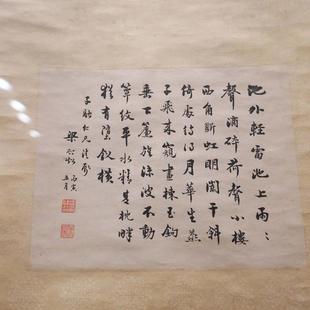 池外輕雷池上雨〻
聲滴碎荷聲小樓
西角斷虹明闌干斜
倚處待得月華生燕
子飛來窺畫棟玉鈎
垂下簾旌涼波不動
簟紋平水精枕畔
猶有墮釵橫
子仁兄
梁啟超
丙寅
五月